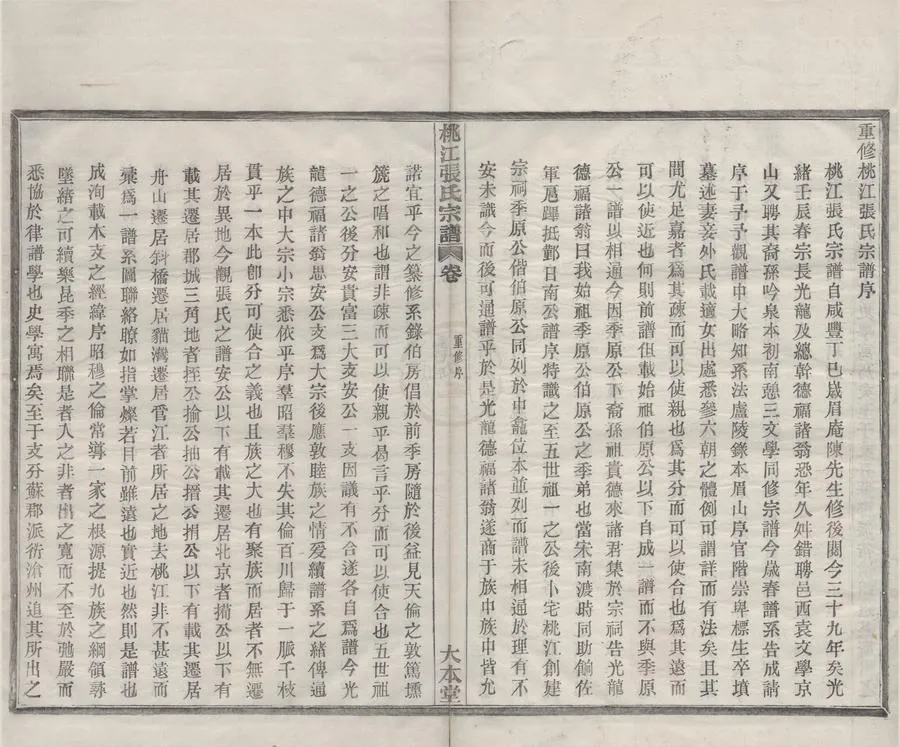 重修桃江張氏宗譜序
桃江張氏宗譜自咸豐丁巳歲眉庵陳先生修後閱今三十九年矣光
緒壬辰春宗長光龍及總幹德福諸翁恐年久舛錯聘邑西袁文學京
山又聘其裔孫吟泉本初南憩三文學同修宗譜今歲春譜系告成請
序于予予觀譜中大略知系法盧陵錄本眉山序官階崇卑標生卒墳
墓述妻妾外氏載適女出處悉參六朝之體例可謂詳而有法矣且其
間尤足嘉者爲其疎而可以使親也爲其分而可以使合也爲其遠而
可以使近也何則前譜但載始祖伯原公以下自成一譜而不與季原
公一譜以相通今因季原公下裔孫祖貴德來諸君集於宗祠告光龍
德福諸翁曰我始祖季原公伯原公之季弟也當宋南渡時同助餉佐
軍扈蹕抵鄞日南公譜序特識之至五世祖一之公後卜宅桃江創建
宗祠季原公偕伯原公同列於中龕位本並列而譜未相通於理有不
安未識今而後可通譜乎於是光龍德福諸翁遂商于族中族中皆允
桃江張氏宗譜 卷
重修序
大本堂
諾宜乎今之纂修系錄伯房倡於前季房隨於後益見天倫之敦篤壎
篪之唱和也謂非疎而可以使親乎曷言乎分而可以使合也五世祖
一之公後分安貴富三大支安公一支因議有不合遂各自爲譜今光
龍德福諸翁思安公支爲大宗後應敦睦族之情爰續譜系之緒俾通
族之中大宗小宗悉依乎序羣昭羣穆不失其倫百川歸于一脈千枝
貫乎一本此卽分可使合之義也且族之大也有聚族而居者不無遷
居於異地今觀張氏之譜安公以下有載其遷居北京者揚公以下有
載其遷居郡城三角地者挃公揄公抽公搢公捐公以下有載其遷居
舟山遷居斜橋遷居貓灣遷居管江者所居之地去桃江非不甚遠而
彙爲一譜系圖聯絡瞭如指掌燦若目前雖遠也實近也然則是譜也
成洵載本支之經緯序昭穆之倫常導一家之根源提九族之綱領尋
墜緒之可續樂昆季之相聯是者入之非者出之寬而不至於弛嚴而
悉協於律譜學也史學寓焉矣至于支分蘇郡派衍滄州追其所出之